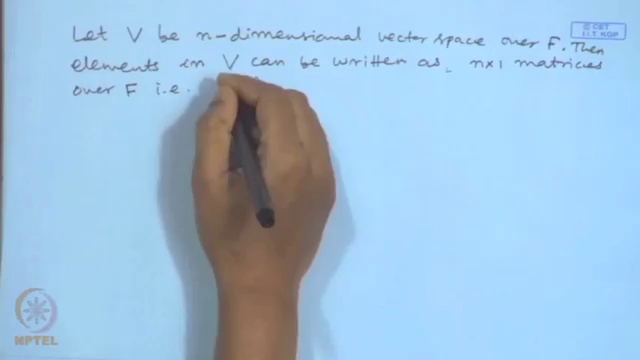 © CET
I.I.T. KGP
Let V be n-dimensional vector space over F. Then
elements in V can be written as, n×1 matricies
over F i.e.
NPTEL